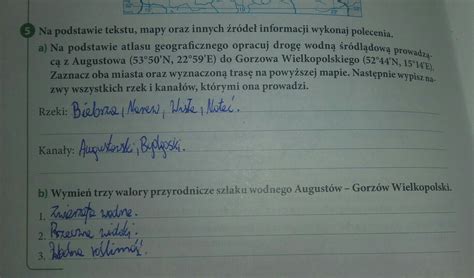 5 Na podstawie tekstu, mapy oraz innych źródeł informacji wykonaj polecenia.
a) Na podstawie atlasu geograficznego opracuj drogę wodną śródlądową prowadzą-
cą z Augustowa (53°50'N, 22°59'E) do Gorzowa Wielkopolskiego (52°44'N, 15°14'E).
Zaznacz oba miasta oraz wyznaczoną trasę na powyższej mapie. Następnie wypisz na-
zwy wszystkich rzek i kanałów, którymi ona prowadzi.
Rzeki: Biebrza, Narew, Wisła, Noteć.
Kanały: Augustowski, Bydgoski.
b) Wymień trzy walory przyrodnicze szlaku wodnego Augustów – Gorzów Wielkopolski.
1. Zwierzęta wodne.
2. Rzeczne widoki.
3. Wodna roślinność.